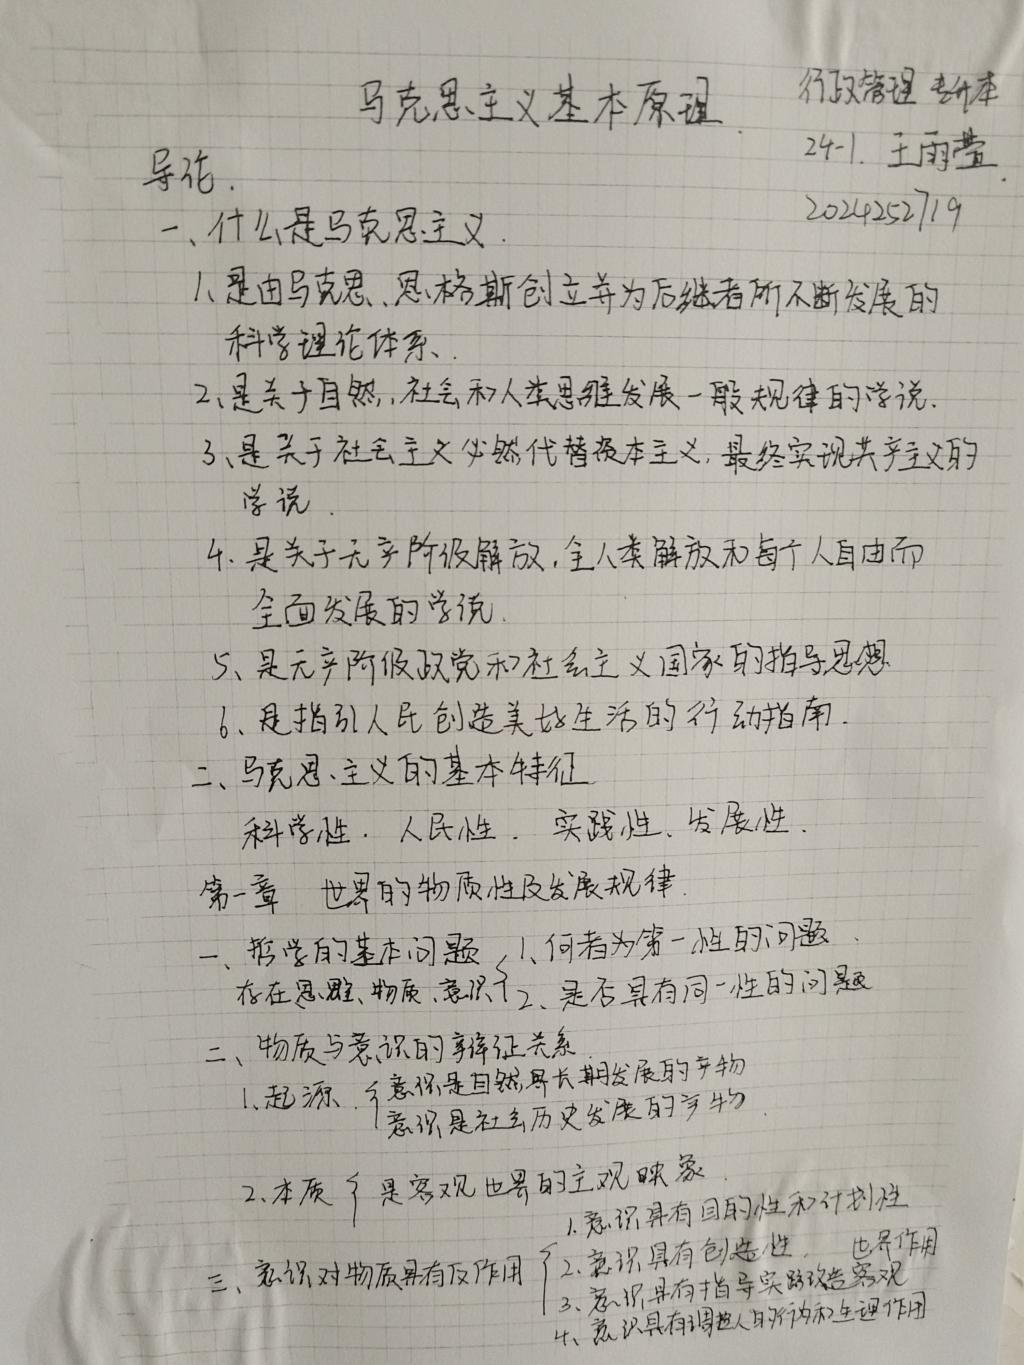 马克思主义基本原理
行政管理 专升本
24-1. 王雨萱.
2024252719
导论.
一、什么是马克思主义.
1、是由马克思、恩格斯创立并为后继者所不断发展的
科学理论体系、.
2、是关于自然,社会和人类思维发展一般规律的学说.
3、是关于社会主义必然代替资本主义,最终实现共产主义的
学说.
4.是关于无产阶级解放,全人类解放和每个人自由而
全面发展的学说.
5、是无产阶级政党和社会主义国家的指导思想
6、是指引人民创造美好生活的行动指南.
二、马克思主义的基本特征
科学性.人民性.实践性、发展性.
第一章 世界的物质性及发展规律.
一、哲学的基本问题 1、何者为第一性的问题.
存在思维、物质、意识 2、是否具有同一性的问题
二、物质与意识的辩证关系.
1、起源. 意识是自然界长期发展的产物
意识是社会历史发展的产物.
2、本质 是客观世界的主观映象.
1.意识具有目的性和计划性
三、意识对物质具有反作用 2.意识具有创造性.
3、意识具有指导实践改造客观世界作用
4、意识具有调控人的行为和生理作用